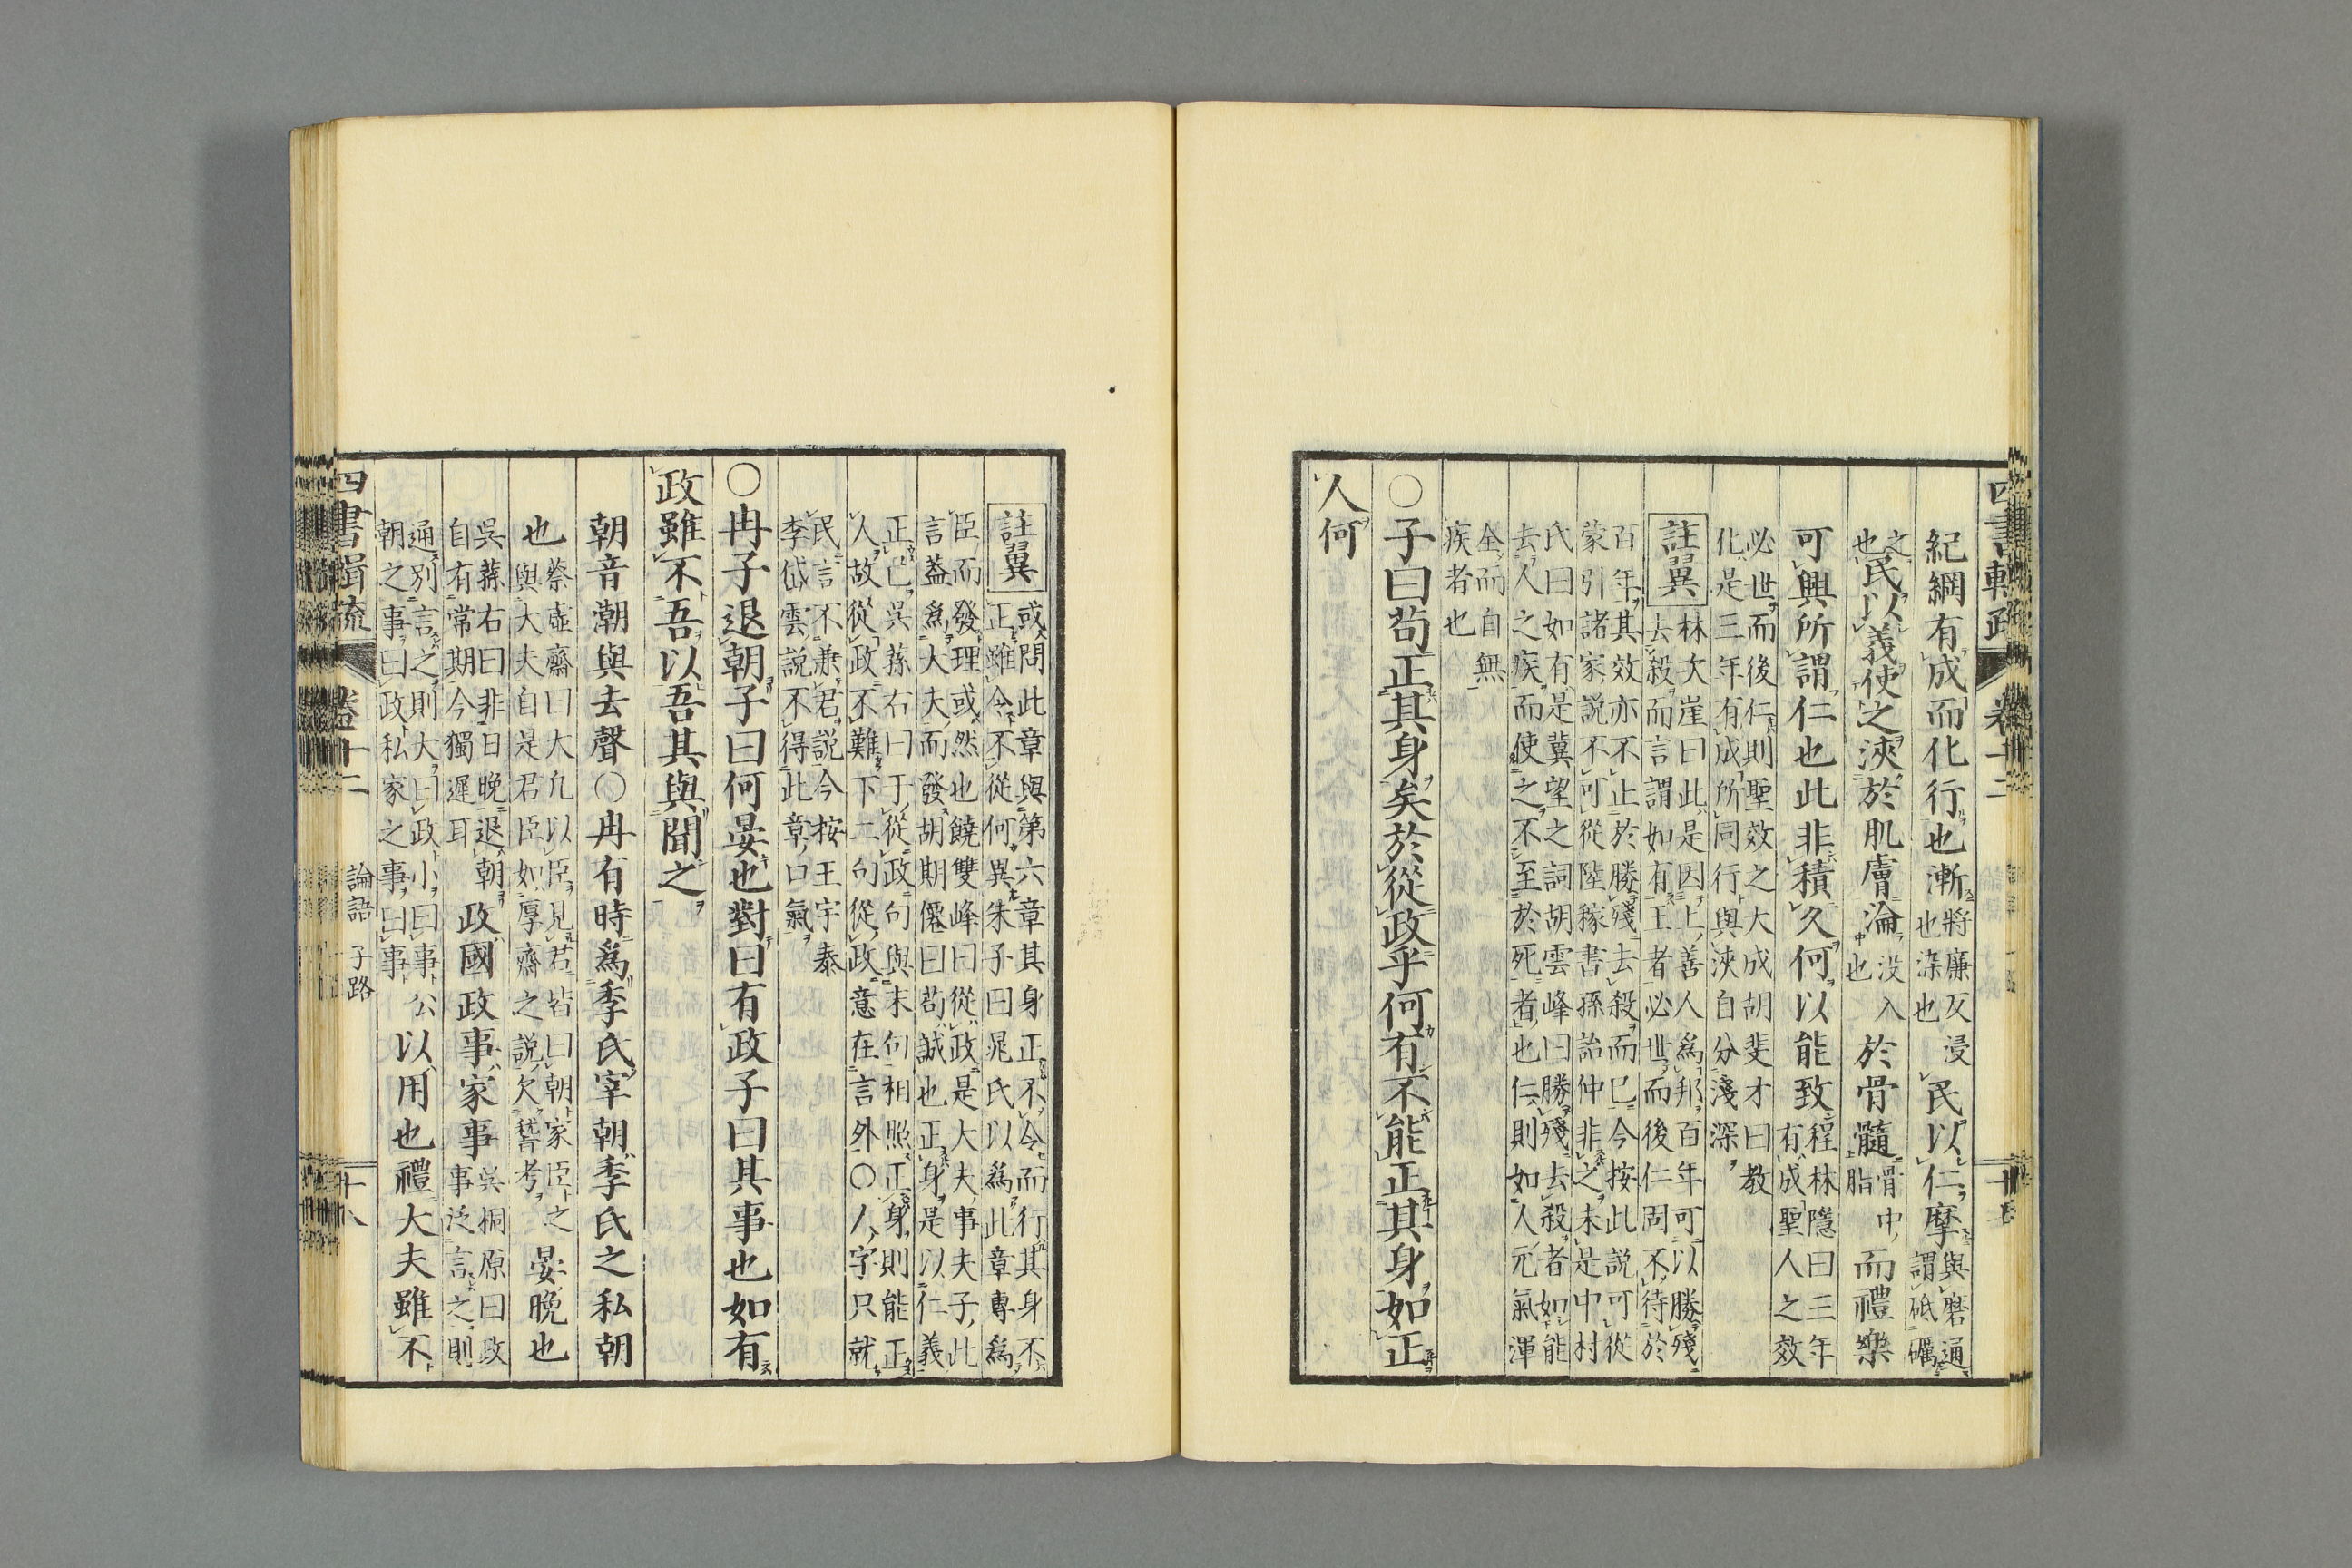 紀綱有成而化行也漸將廉反浸也染也民以仁摩與磨通謂砥礪
之也民以義使之浹於肌膚淪没入中也於骨髓骨中脂而禮樂
可興所謂仁也此非積久何以能致程林隱曰三年有成聖人之效
必世而後仁則聖效之大成胡斐才曰教
化是三年有成所同行與浹自分淺深
註翼
林次崖曰此是因上善人爲邦百年可以勝殘
去殺而言謂如有王者必世而後仁固不待於
百年其效亦不止於勝殘去殺而已今按此説可從
蒙引諸家説不可從陸稼書孫詒仲非之未是中村
氏曰如有是冀望之詞胡雲峰曰勝殘去殺者如能
去人之疾而使之不至於死者也仁則如人元氣渾
全而自無
疾者也
○子曰苟正其身矣於從政乎何有不能正其身如正
人何
註翼
或問此章與第六章其身正不令而行其身不
正雖令不從何異朱子曰晁氏以爲此章專爲
臣而發理或然也饒雙峰曰從政是大夫事夫子此
言葢爲大夫而發胡期僊曰苟誠也正身是以仁義
正己吳蓀右曰于從政句與末句相照正身則能正
人故從政不難下二句從政意在言外○人字只就
民言不兼君説今按王宇泰
李岱雲説不得此章口氣
○冉子退朝子曰何晏也對曰有政子曰其事也如有
政雖不吾以吾其與聞之
朝音潮與去聲○冉有時爲季氏宰朝季氏之私朝
也蔡虛齋曰大凢以臣見君皆曰朝家臣之與大夫自是君臣如厚齋之説欠稽考晏晚也
吳蓀右曰非日晚退朝自有常期今獨遲耳政國政事家事吳桐原曰政事泛言之則
通別言之則大曰政小曰事公朝之事曰政私家之事曰事以用也禮大夫雖不
四書輯疏
卷十二
論語 子路
十八